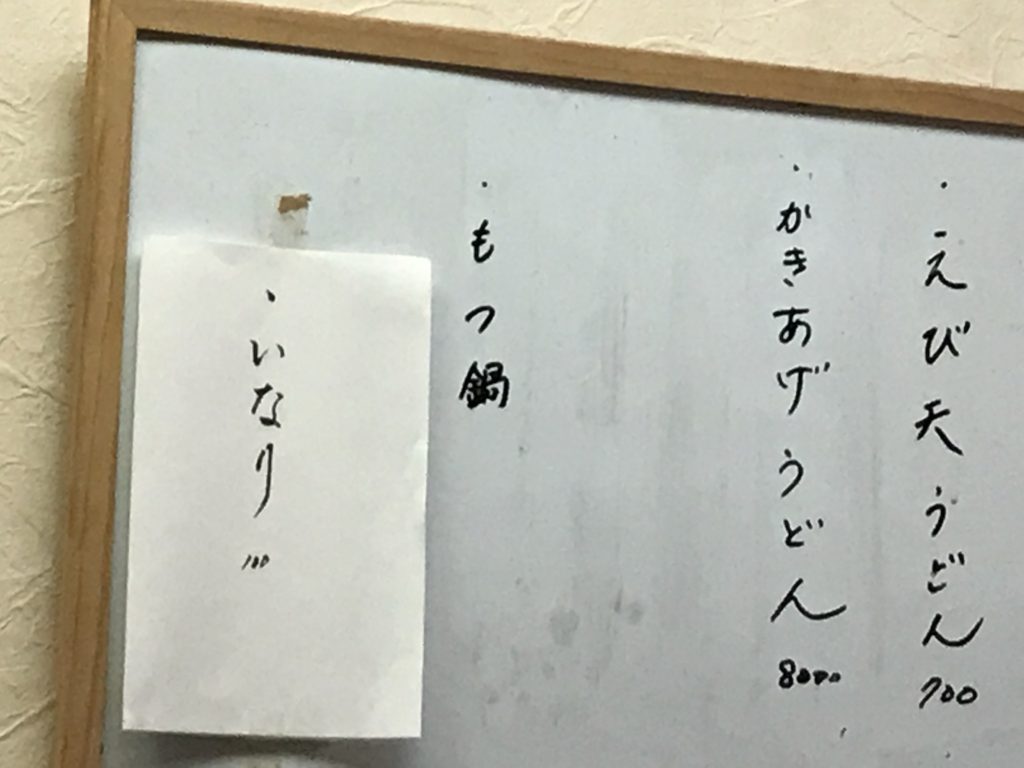 ・えび天うどん 700
・かきあげうどん 800
・もつ鍋
・いなり 100